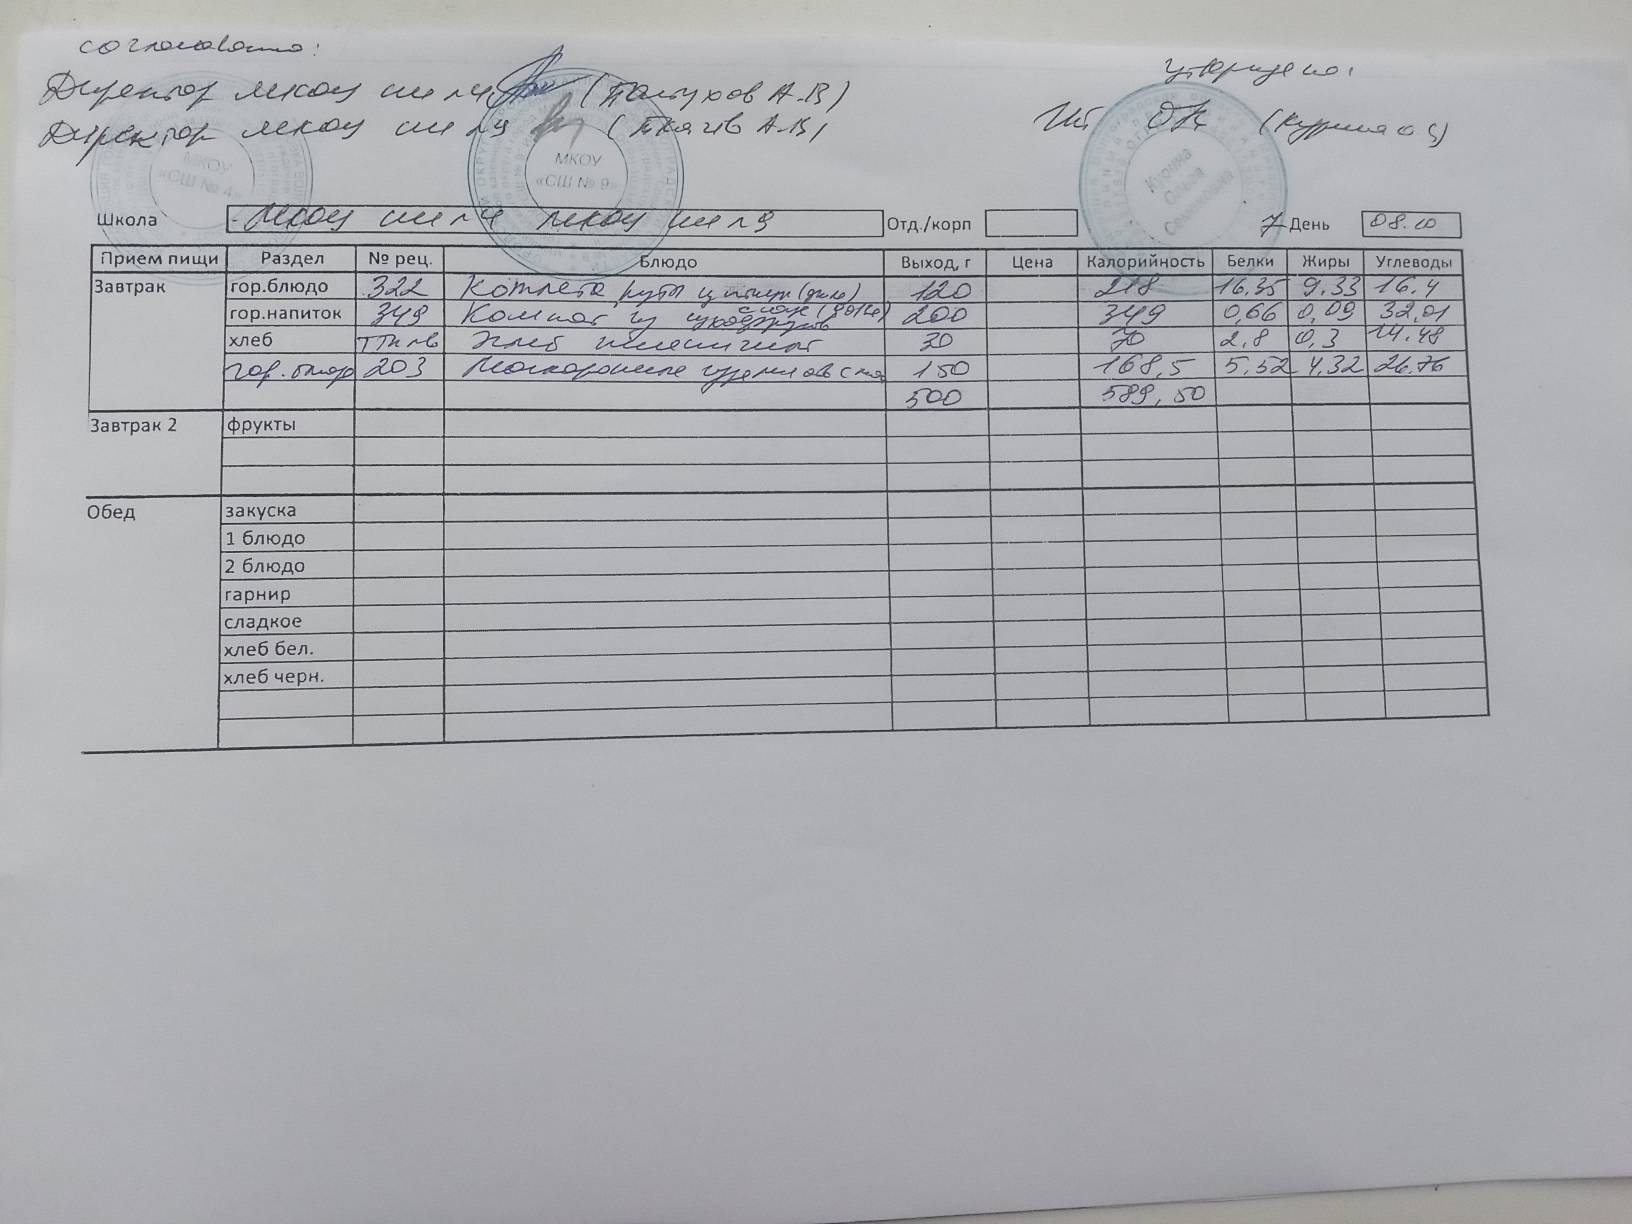 согласовано:
Директор МКОУ СШ №4 (Пастухов А.В)
Директор МКОУ СШ №9 (Ткачёв А.В)
утверждено:
ИП ОК (Курина О С)
МКОУ «СШ № 4»
МКОУ «СШ № 9»
Курина Олеся Семеновна
Школа МКОУ СШ №4 МКОУ СШ №9 Отд./корп 7 День 08.10
Прием пищи Раздел № рец. Блюдо Выход, г Цена Калорийность Белки Жиры Углеводы
Завтрак гор.блюдо 322 Котлета руб из птицы (филе) 120 218 16,35 9.33 16.4
с соус (90/30)
гор.напиток 349 Компот из сухофруктов 200 349 0,66 0,09 32,01
хлеб ТТК пв Хлеб пшеничный 30 70 2,8 0,3 14.48
гор.блюдо 203 Макаронные изделия отв с мас 150 168,5 5,52 4,32 26.76
500 589,50
Завтрак 2 фрукты
Обед закуска
1 блюдо
2 блюдо
гарнир
сладкое
хлеб бел.
хлеб черн.